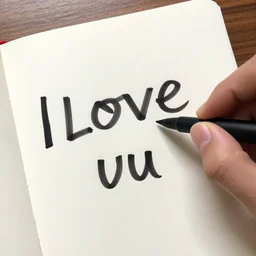 I Love
uu